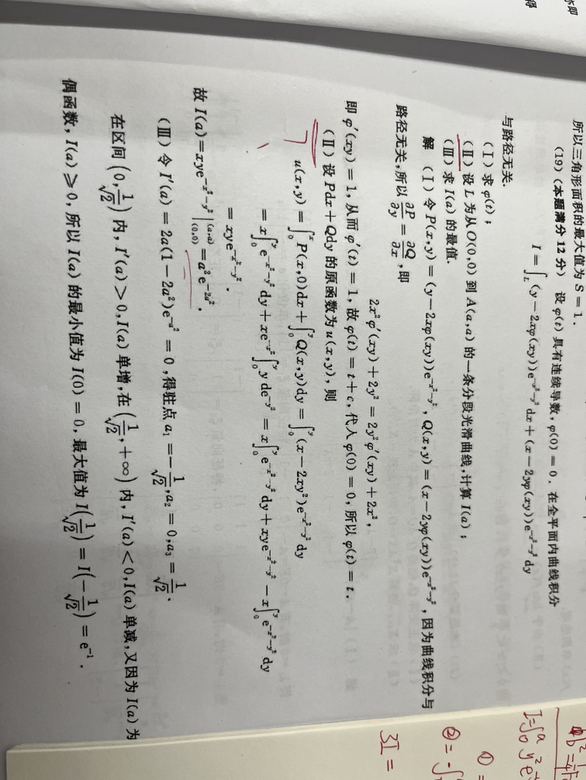 所以三角形面积的最大值为 S = 1.
(19) (本题满分 12 分) 设 φ(t) 具有连续导数, φ(0) = 0. 在全平面内曲线积分
I = ∫_L (y − 2xφ(xy))e^{−x²−y²}dx + (x − 2yφ(xy))e^{−x²−y²}dy
与路径无关.
(Ⅰ) 求 φ(t);
(Ⅱ) 设 L 为从 O(0,0) 到 A(a,a) 的一条分段光滑曲线, 计算 I(a);
(Ⅲ) 求 I(a) 的最值.
解 (Ⅰ) 令 P(x,y) = (y − 2xφ(xy))e^{−x²−y²}, Q(x,y) = (x − 2yφ(xy))e^{−x²−y²}, 因为曲线积分与
路径无关, 所以 ∂P/∂y = ∂Q/∂x, 即
2x²φ′(xy) + 2y² = 2y²φ′(xy) + 2x²,
即 φ′(xy) = 1, 从而 φ′(t) = 1, 故 φ(t) = t + c, 代入 φ(0) = 0, 所以 φ(t) = t.
(Ⅱ) 设 Pdx + Qdy 的原函数为 u(x,y), 则
u(x,y) = ∫₀ˣ P(x,0)dx + ∫₀ʸ Q(x,y)dy = ∫₀ʸ (x − 2xy²)e^{−x²−y²}dy
= x∫₀ʸ e^{−x²−y²}dy + xe^{−x²}∫₀ʸ y de^{−y²} = x∫₀ʸ e^{−x²−y²}dy + xye^{−x²−y²} − x∫₀ʸ e^{−x²−y²}dy
= xye^{−x²−y²}.
故 I(a) = xye^{−x²−y²}|_{(0,0)}^{(a,a)} = a²e^{−2a²}.
(Ⅲ) 令 I′(a) = 2a(1 − 2a²)e^{−a²} = 0, 得驻点 a₁ = −1/√2, a₂ = 0, a₃ = 1/√2.
在区间 (0, 1/√2) 内, I′(a) > 0, I(a) 单增, 在 (1/√2, +∞) 内, I′(a) < 0, I(a) 单减, 又因为 I(a) 为
偶函数, I(a) ≥ 0, 所以 I(a) 的最小值为 I(0) = 0, 最大值为 I(1/√2) = I(−1/√2) = e⁻¹.
①
② = −
3I =